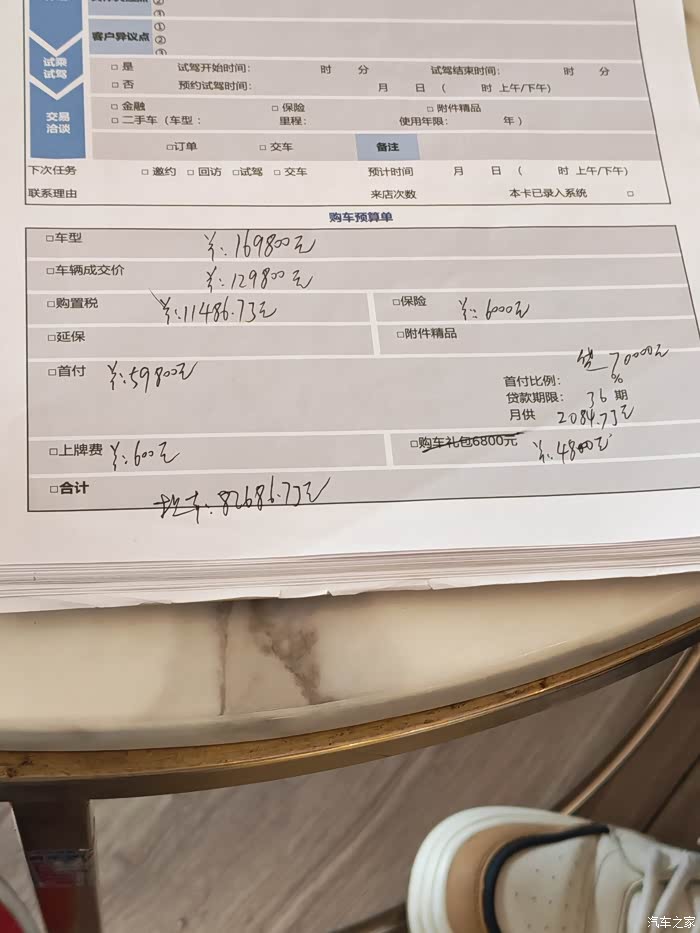 ①
客户异议点 ②
③
试乘试驾 □ 是 试驾开始时间： 时 分 试驾结束时间： 时 分
□ 否 预约试驾时间： 月 日 （ 时 上午/下午)
交易洽谈 □ 金融 □ 保险 □ 附件精品
□ 二手车（车型： 里程： 使用年限： 年 ）
□订单 □ 交车 备注
下次任务 □ 邀约 □ 回访 □试驾 □ 交车 预计时间 月 日 （ 时 上午/下午)
联系理由 来店次数 本卡已录入系统 □
购车预算单
□车型 ¥：169800元
□车辆成交价 ¥：129800元
□购置税 ¥：11486.73元 □保险 ¥：6000元
□延保 □附件精品
□首付 ¥：59800元 贷70000元
首付比例： %
贷款期限： 36 期
月供 2084.73元
□上牌费 ¥：600元 □购车礼包6800元 ¥：4800元
□合计 提车：82686.73元
汽车之家